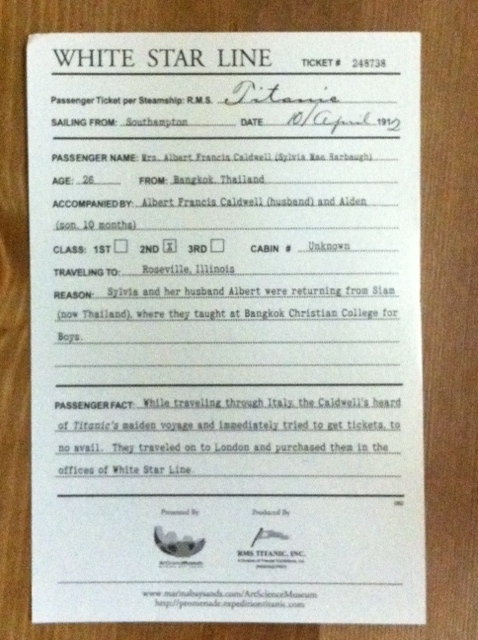 WHITE STAR LINE TICKET # 248738
Passenger Ticket per Steamship: R.M.S. Titanic
SAILING FROM: Southampton DATE 10/April 1912
PASSENGER NAME: Mrs. Albert Francis Caldwell (Sylvia Mae Harbaugh)
AGE: 26 FROM: Bangkok, Thailand
ACCOMPANIED BY: Albert Francis Caldwell (husband) and Alden
(son, 10 months)
CLASS: 1ST 2ND X 3RD CABIN # Unknown
TRAVELING TO: Roseville, Illinois
REASON: Sylvia and her husband Albert were returning from Siam
(now Thailand), where they taught at Bangkok Christian College for
Boys.
PASSENGER FACT: While traveling through Italy, the Caldwell's heard
of Titanic's maiden voyage and immediately tried to get tickets, to
no avail. They traveled on to London and purchased them in the
offices of White Star Line.
Presented By Produced By
ArtScienceMuseum
RMS TITANIC, INC.
www.marinabaysands.com/ArtScienceMuseum
http://promenade.expeditiontitanic.com